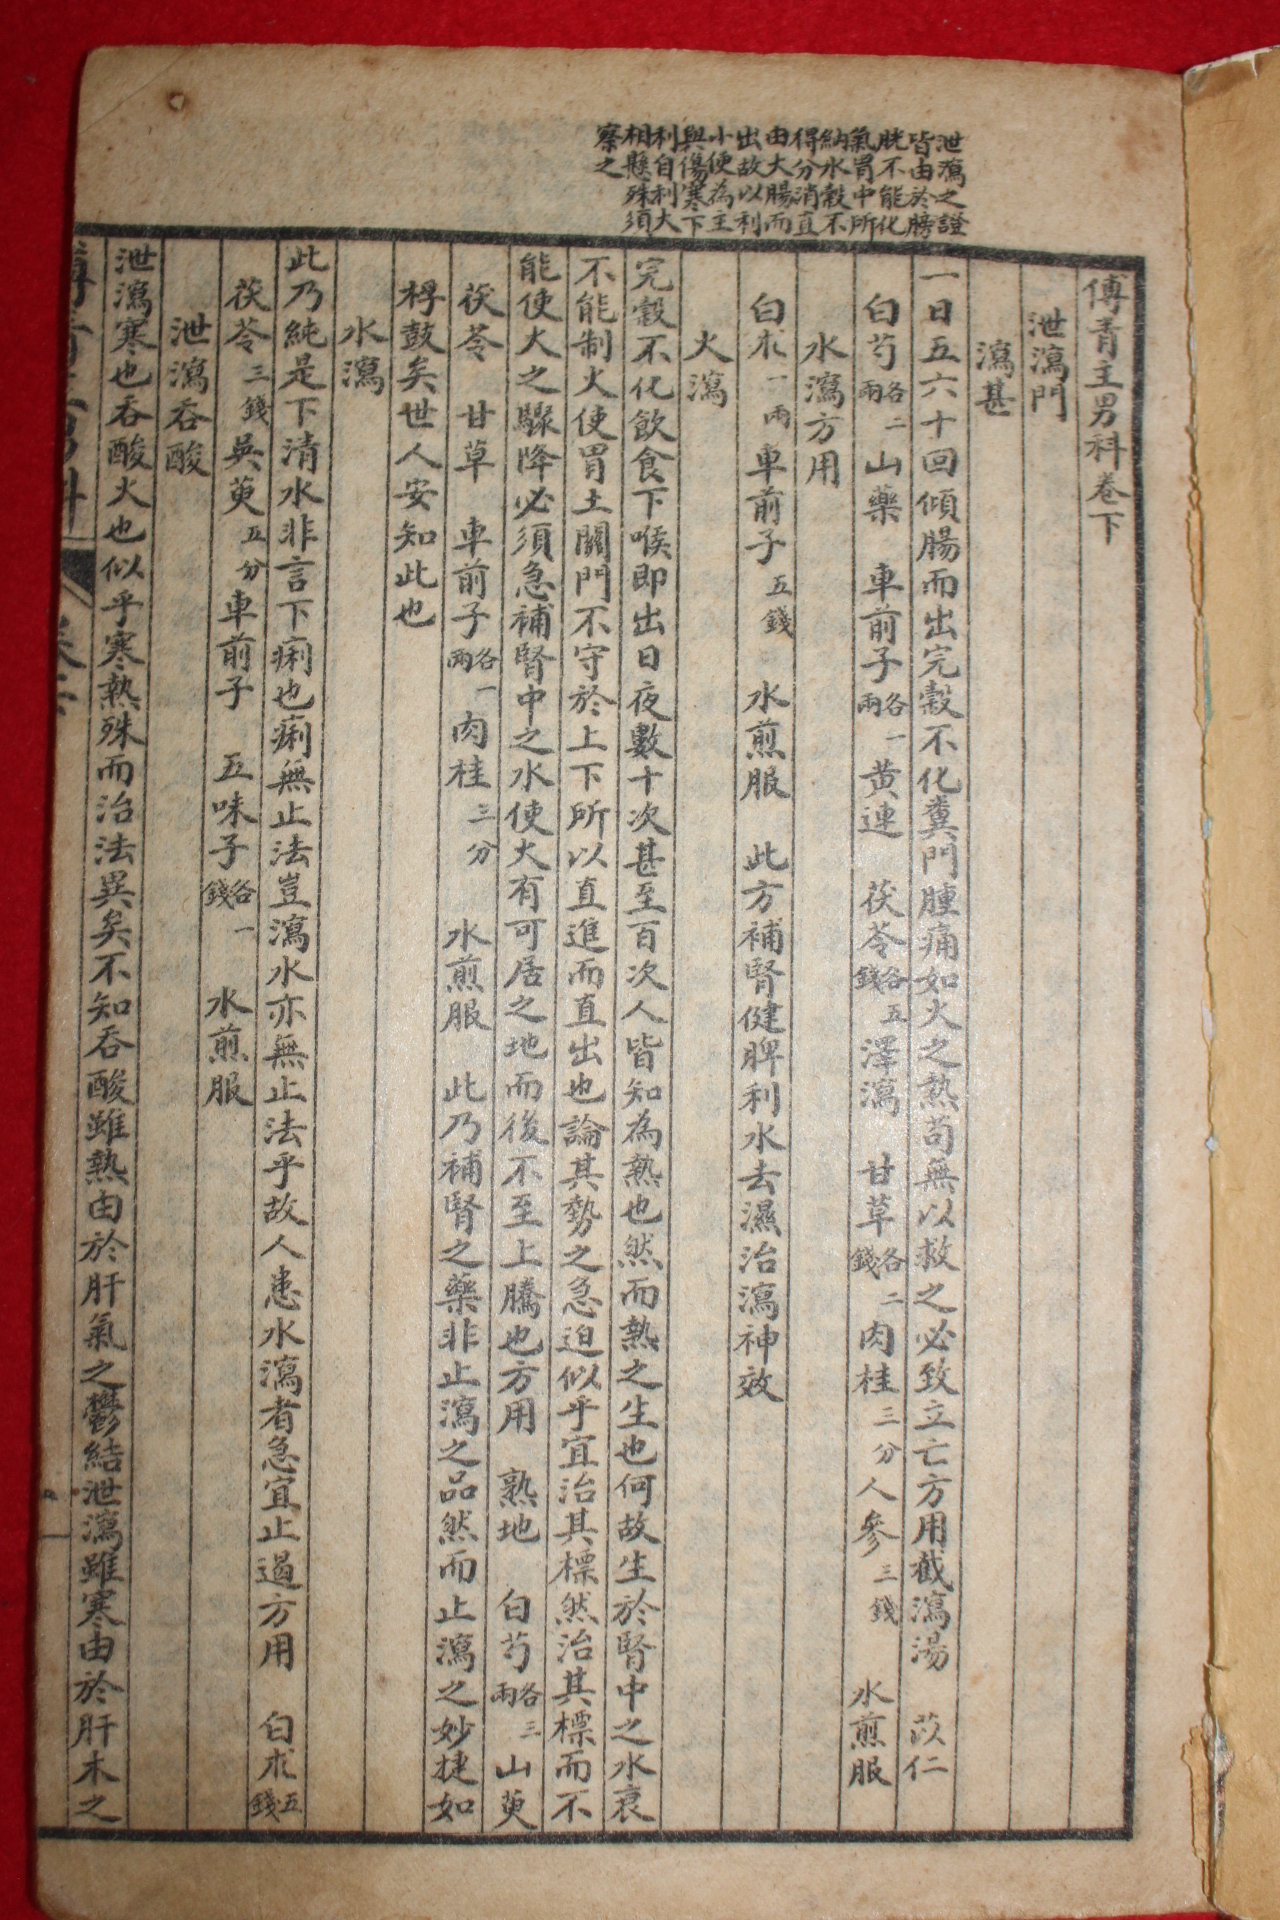 泄瀉之證
皆由於膀
胱不能化
氣胃中所
納水穀不
得分消直
由大腸而
出故以利
小便為主
與傷寒下
利自利大
相懸殊須
察之
傅青主男科卷下
泄瀉門
瀉甚
一日五六十回傾腸而出完穀不化糞門腫痛如火之熱苟無以救之必致立亡方用截瀉湯 苡仁
白芍各二兩 山藥 車前子各一兩 黃連 茯苓各五錢 澤瀉 甘草各二錢 肉桂三分 人參三錢 水煎服
水瀉方用
白朮一兩 車前子五錢 水煎服 此方補腎健脾利水去濕治瀉神效
火瀉
完穀不化飲食下喉即出日夜數十次甚至百次人皆知為熱也然而熱之生也何故生於腎中之水衰
不能制火使胃土關門不守於上下所以直進而直出也論其勢之急迫似乎宜治其標然治其標而不
能使火之驟降必須急補腎中之水使火有可居之地而後不至上騰也方用 熟地 白芍各三兩 山萸
茯苓 甘草 車前子各一兩 肉桂三分 水煎服 此乃補腎之藥非止瀉之品然而止瀉之妙捷如
桴鼓矣世人安知此也
水瀉
此乃純是下清水非言下痢也痢無止法豈瀉水亦無止法乎故人患水瀉者急宜止遏方用 白朮五錢
茯苓三錢 吳萸五分 車前子 五味子各一錢 水煎服
泄瀉吞酸
泄瀉寒也吞酸火也似乎寒熱殊而治法異矣不知吞酸雖熱由於肝氣之鬱結泄瀉雖寒由於肝木之